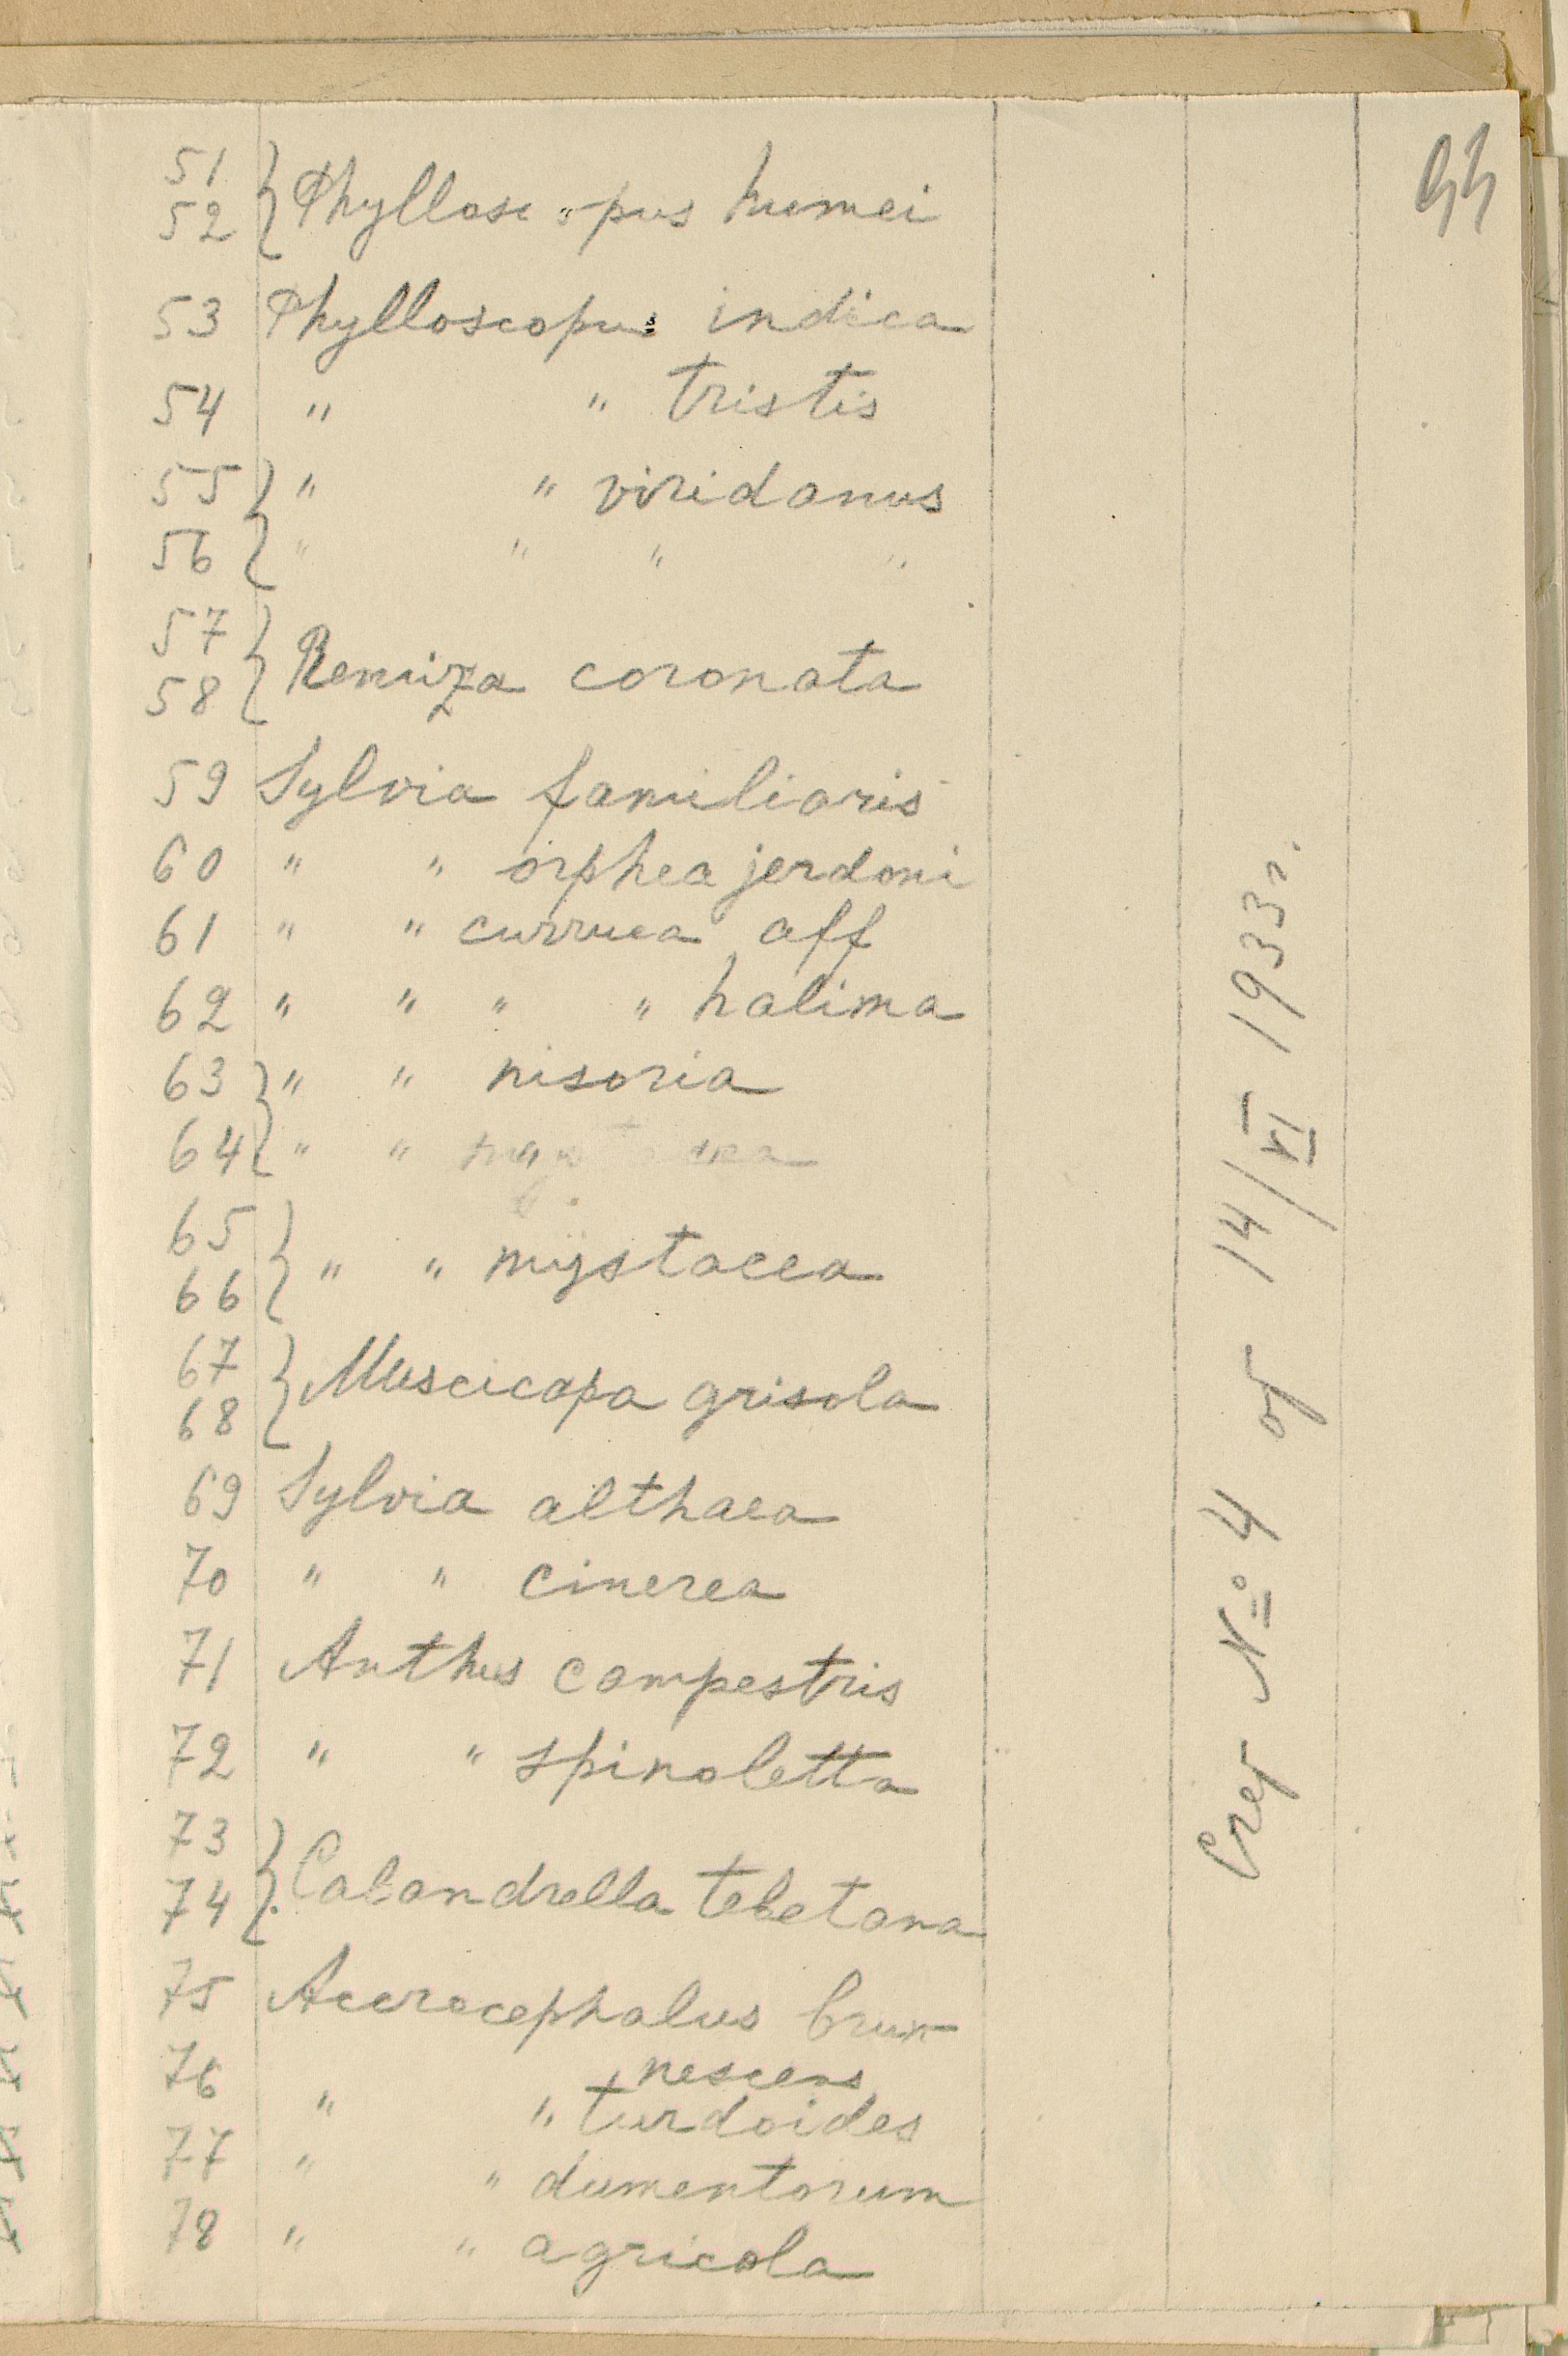 51
52 } Phylloscopus humei
53 Phylloscopus indica
54 " " tristis
55 } " " viridanus
56 } " " " "
57
58 } Remiza coronata
59 Sylvia familiaris
60 " " orphea jerdoni
61 " " curruca aff
62 " " " " halima
63 } " " nisoria
64 } " "
65
66 } " " mystacea
67
68 } Muscicapa grisola
69 Sylvia althaea
70 " " cinerea
71 Anthus campestris
72 " " spinoletta
73
74 } Calandrella tebetana
75 Accrocephalus brun-
nescens
76 " " turdoides
77 " " dumentorum
78 " " agricola
Счет № 4 от 14/VI 1933 г.